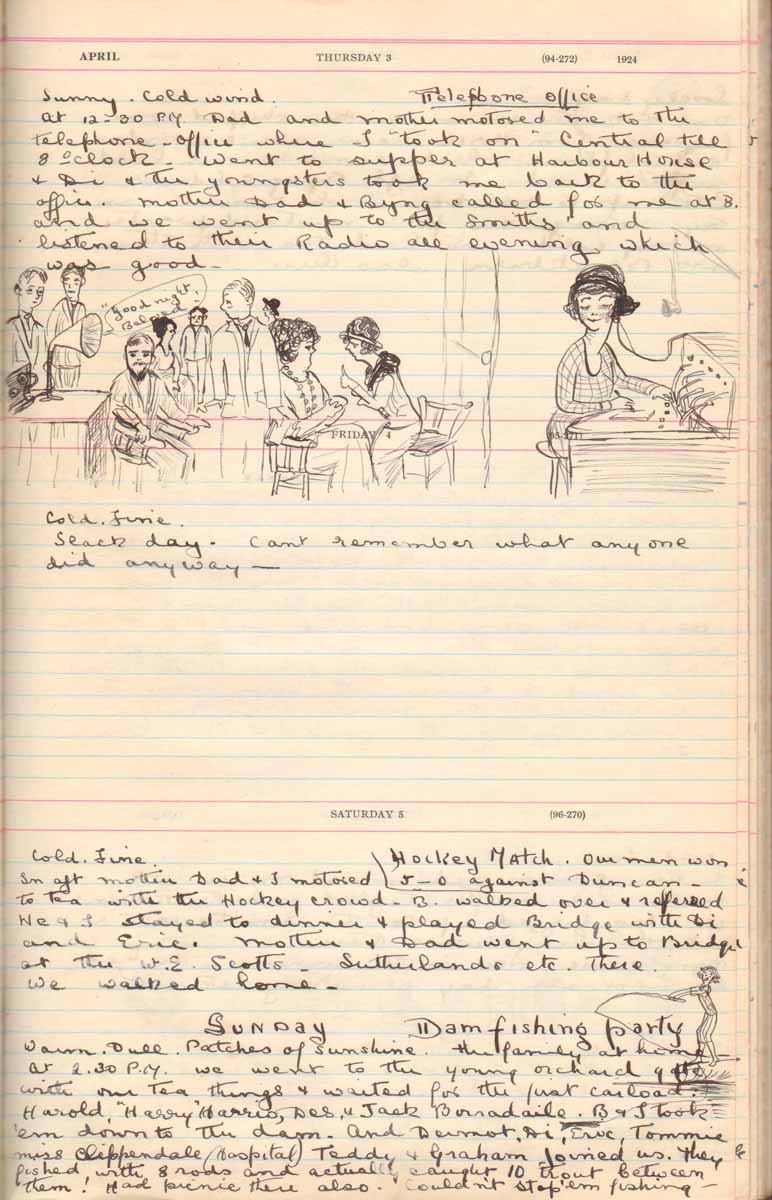 APRIL THURSDAY 3 (94-272) 1924
Sunny. Cold wind. Telephone office
At 12-30 P.M. Dad and mother motored me to the
telephone-office where I "took on" Central till
8 o'clock - Went to supper at Harbour House
& Di & the youngsters took me back to the
office. Mother Dad & Byng called for me at 8.
and we went up to the Smiths' and
listened to their Radio all evening which
was good -
"Good night, Beloved"
FRIDAY 4
Cold. Fine.
Slack day. Cant remember what anyone
did anyway —
SATURDAY 5 (96-270)
Cold. Fine. Hockey Match. Our men won
In aft mother Dad & I motored 5-0 against Duncan -
to tea with the Hockey crowd - B. walked over & refereed
He & I stayed to dinner & played Bridge with Di
and Eric. Mother & Dad went up to Bridge
at the W.E. Scotts - Sutherlands etc. There.
We walked home -
Sunday Dam fishing party
Warm. Dull. Patches of sunshine. The family at home
At 2.30 P.M. we went to the young orchard gate
with our Tea things & waited for the first carload.
Harold, "Harry" Harris, Des, & Jack Borradaile. B & I took
'em down to the dam. And Dermot, Di, Eric, Tommie
Miss Clippendale (Hospital) Teddy & Graham joined us. They
fished with 8 rods and actually caught 10 trout between
them! Had picnic there also. Couldn't stop 'em fishing -